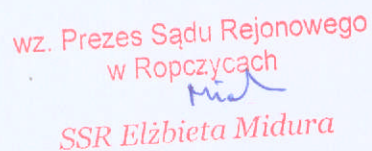 wz. Prezes Sądu Rejonowego
w Ropczycach
SSR Elżbieta Midura